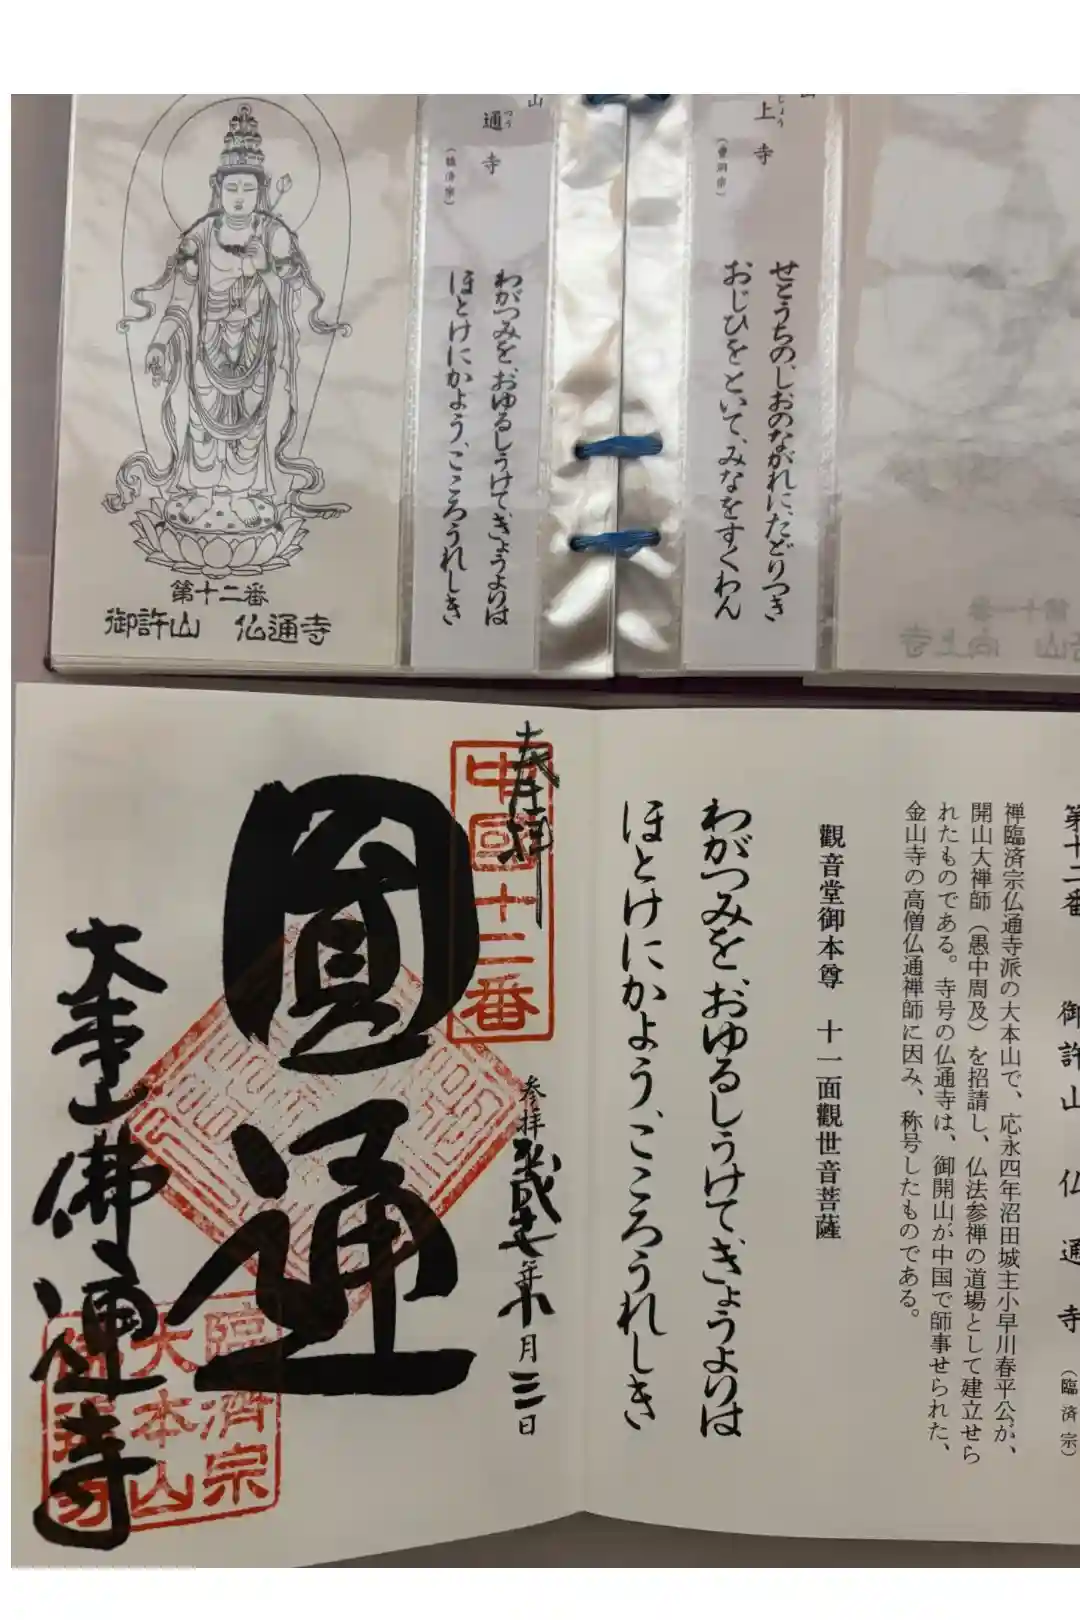 山
上寺
じょう
(曹洞宗)
せとうちの、しおのながれに、たどりつき
おじひをといて、みなをすくわん
山
通寺
つう
(臨済宗)
わがつみを、おゆるしうけて、ぎょうよりは
ほとけにかよう、こころうれしき
第十二番
御許山 仏通寺
第十一番
山 向上寺
第十二番 御許山 仏通寺 (臨済宗)
禅臨済宗仏通寺派の大本山で、応永四年沼田城主小早川春平公が、
開山大禅師(愚中周及)を招請し、仏法参禅の道場として建立せら
れたものである。寺号の仏通寺は、御開山が中国で師事せられた、
金山寺の高僧仏通禅師に因み、称号したものである。
觀音堂御本尊 十一面觀世音菩薩
わがつみを、おゆるしうけて、ぎょうよりは
ほとけにかよう、こころうれしき
奉拝
中國十二番
参拝 平成 年 月三日
圓通
大本山佛通寺
臨済宗
大本山
佛通寺